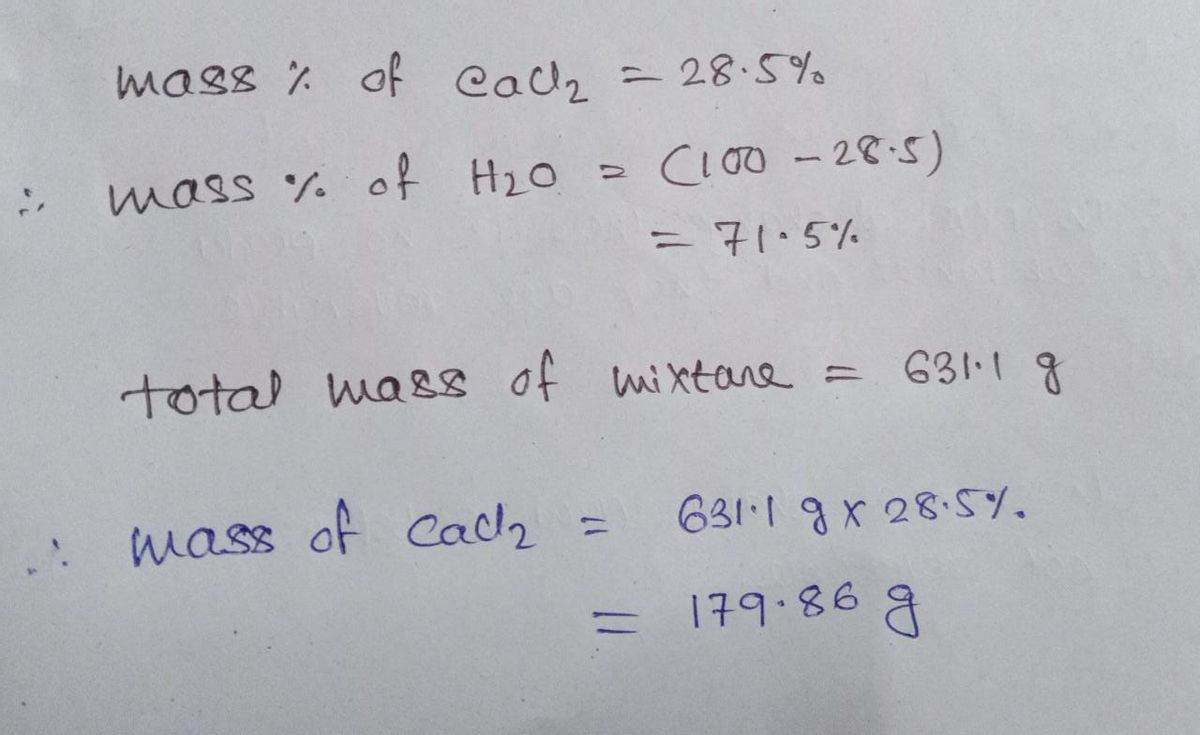 mass % of CaCl2 = 28.5%
∴ mass % of H2O = (100 - 28.5)
= 71.5%
total mass of mixtane = 631.1 g
∴ mass of CaCl2 = 631.1 g x 28.5%.
= 179.86 g